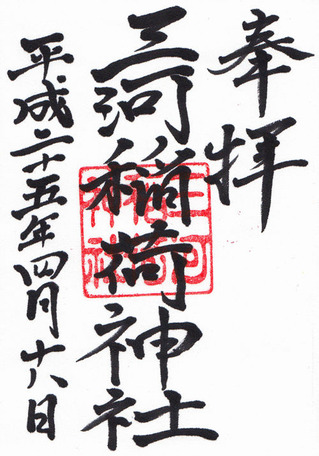 奉拝
三河稲荷神社
平成二十五年四月十八日